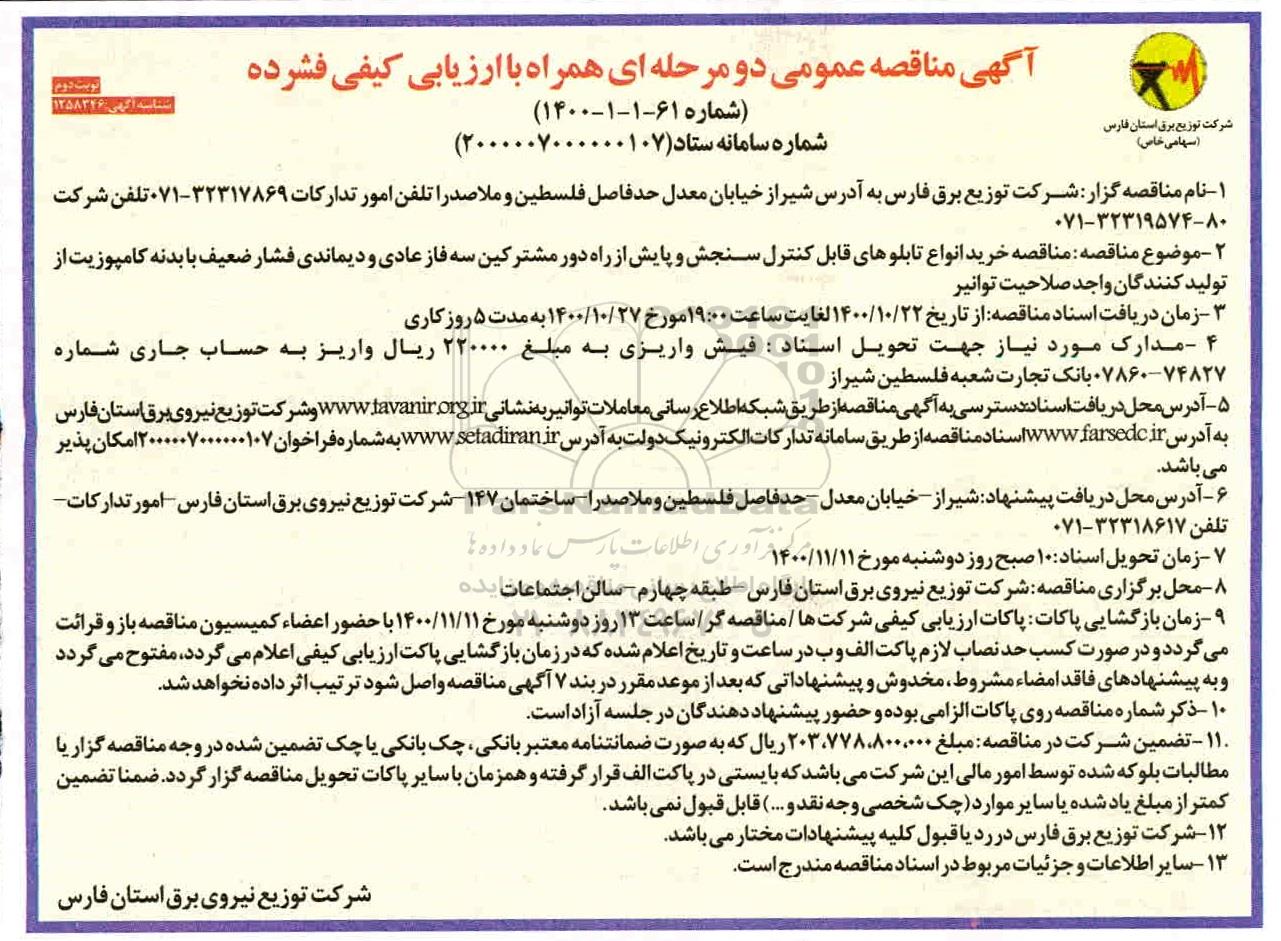 آگهی مناقصه عمومی دو مرحله ای همراه با ارزیابی کیفی فشرده
(شماره ۶۱-۱-۱-۱۴۰۰)
شماره سامانه ستاد(۲۰۰۰۰۰۷۰۰۰۰۰۰۱۰۷)
نوبت دوم
شناسه آگهی:۱۲۵۸۳۴۶
شرکت توزیع برق استان فارس
(سهامی خاص)
۱-نام مناقصه گزار: شرکت توزیع برق فارس به آدرس شیراز خیابان معدل حدفاصل فلسطین و ملاصدرا تلفن امور تدارکات ۳۲۳۱۷۸۶۹-۰۷۱ تلفن شرکت
۸۰-۳۲۳۱۹۵۷۴-۰۷۱
۲-موضوع مناقصه: مناقصه خرید انواع تابلوهای قابل کنترل سنجش و پایش از راه دور مشترکین سه فاز عادی و دیماندی فشار ضعیف با بدنه کامپوزیت از
تولید کنندگان واجد صلاحیت توانیر
۳-زمان دریافت اسناد مناقصه: از تاریخ ۱۴۰۰/۱۰/۲۲ لغایت ساعت ۱۹:۰۰ مورخ ۱۴۰۰/۱۰/۲۷ به مدت ۵ روز کاری
۴-مدارک مورد نیاز جهت تحویل اسناد : فیش واریزی به مبلغ ۲۲۰۰۰۰ ریال واریز به حساب جاری شماره
۷۴۸۲۷-۰۷۸۶۰ بانک تجارت شعبه فلسطین شیراز
۵-آدرس محل دریافت اسناد: دسترسی به آگهی مناقصه از طریق شبکه اطلاع رسانی معاملات توانیر به نشانی www.tavanir.org.ir و شرکت توزیع نیروی برق استان فارس
به آدرس www.farsedc.ir اسناد مناقصه از طریق سامانه تدارکات الکترونیک دولت به آدرس www.setadiran.ir به شماره فراخوان ۲۰۰۰۰۰۷۰۰۰۰۰۰۱۰۷ امکان پذیر
می باشد.
۶-آدرس محل دریافت پیشنهاد: شیراز-خیابان معدل-حدفاصل فلسطین و ملاصدرا-ساختمان ۱۴۷-شرکت توزیع نیروی برق استان فارس-امور تدارکات-
تلفن ۳۲۳۱۸۶۱۷-۰۷۱
۷-زمان تحویل اسناد: ۱۰ صبح روز دوشنبه مورخ ۱۴۰۰/۱۱/۱۱
۸-محل برگزاری مناقصه: شرکت توزیع نیروی برق استان فارس-طبقه چهارم-سالن اجتماعات
۹-زمان بازگشایی پاکات: پاکات ارزیابی کیفی شرکت ها / مناقصه گر/ ساعت ۱۳ روز دوشنبه مورخ ۱۴۰۰/۱۱/۱۱ با حضور اعضاء کمیسیون مناقصه باز و قرائت
می گردد و در صورت کسب حد نصاب لازم پاکت الف و ب در ساعت و تاریخ اعلام شده که در زمان بازگشایی پاکت ارزیابی کیفی اعلام می گردد، مفتوح می گردد
و به پیشنهادهای فاقد امضاء مشروط، مخدوش و پیشنهاداتی که بعد از موعد مقرر در بند ۷ آگهی مناقصه واصل شود ترتیب اثر داده نخواهد شد.
۱۰-ذکر شماره مناقصه روی پاکات الزامی بوده و حضور پیشنهاد دهندگان در جلسه آزاد است.
.۱۱-تضمین شرکت در مناقصه: مبلغ ۲۰۳،۷۷۸،۸۰۰،۰۰۰ ریال که به صورت ضمانتنامه معتبر بانکی، چک بانکی یا چک تضمین شده در وجه مناقصه گزار یا
مطالبات بلوکه شده توسط امور مالی این شرکت می باشد که بایستی در پاکت الف قرار گرفته و همزمان با سایر پاکات تحویل مناقصه گزار گردد. ضمنا تضمین
کمتر از مبلغ یاد شده یا سایر موارد (چک شخصی وجه نقد و ...) قابل قبول نمی باشد.
۱۲-شرکت توزیع برق فارس در رد یا قبول کلیه پیشنهادات مختار می باشد.
۱۳-سایر اطلاعات و جزئیات مربوط در اسناد مناقصه مندرج است.
شرکت توزیع نیروی برق استان فارس
ParsNamadData
مرکز فرآوری اطلاعات پارس نماد داده ها